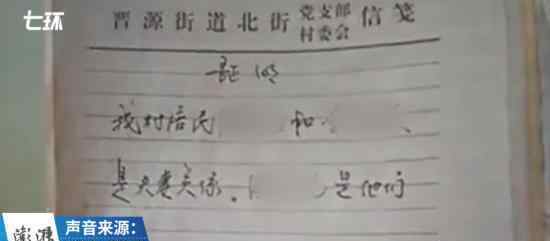 七环
晋源街道北街 党支部 村委会 信笺
证明
我村居民 和 、
是夫妻关系。 是他们
澎湃
声音来源：